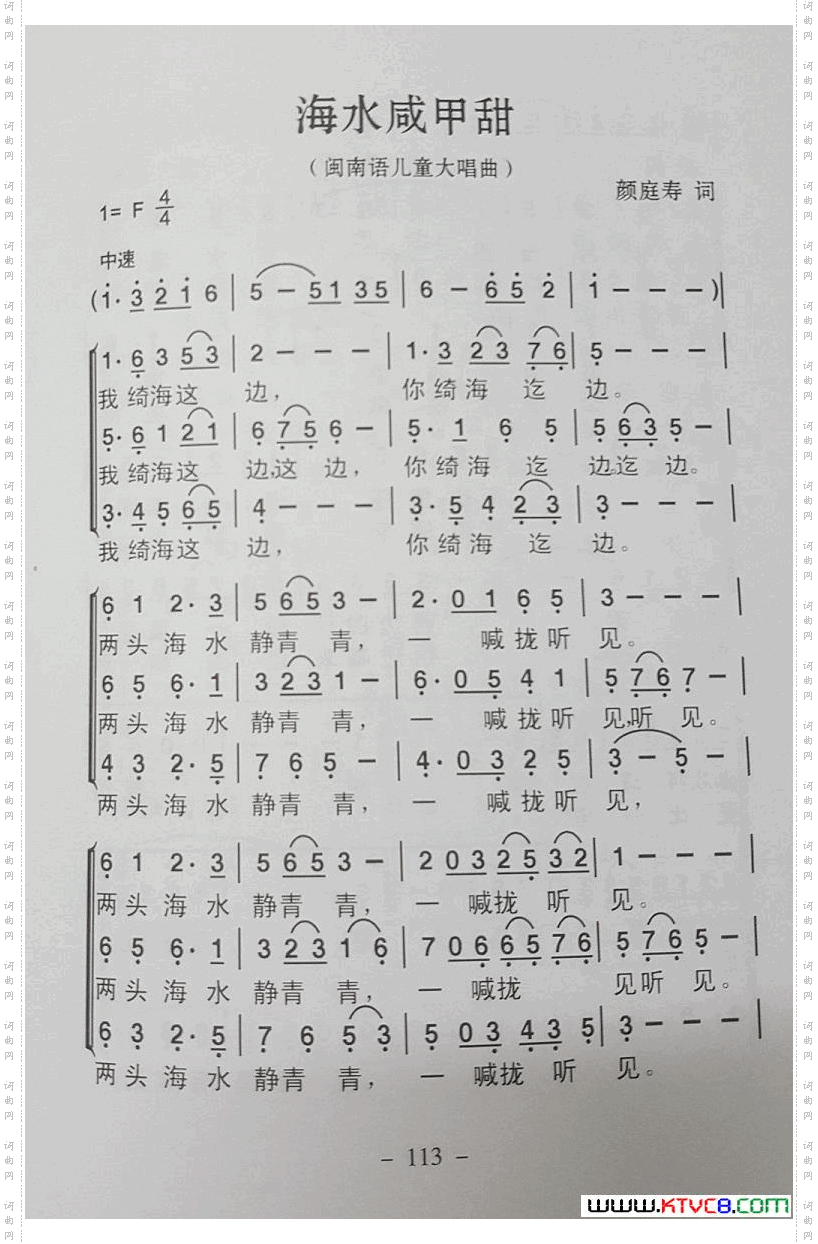 海水咸甲甜
（闽南语儿童大唱曲）
颜庭寿 词
1= F 4/4
中速
(1· 3 2 1 6 | 5 – 51 35 | 6 – 6 5 2 | 1 – – – )|
1· 6 3 5 3 | 2 – – – | 1· 3 2 3 7 6 | 5 – – – |
我绮海这 边， 你绮海 迄 边。
5· 6 1 2 1 | 6 7 5 6 – | 5· 1 6 5 | 5 6 3 5 – |
我绮海这 边，这 边， 你绮海 迄 边，迄 边。
3· 4 5 6 5 | 4 – – – | 3· 5 4 2 3 | 3 – – – |
我绮海这 边， 你绮海 迄 边。
6 1 2· 3 | 5 6 5 3 – | 2· 0 1 6 5 | 3 – – – |
两头海水静青 青， 一 喊拢听 见。
6 5 6· 1 | 3 2 3 1 – | 6· 0 5 4 1 | 5 7 6 7 – |
两头海水静青 青， 一 喊拢听 见，听 见。
4 3 2· 5 | 7 6 5 – | 4· 0 3 2 5 | 3 – 5 – |
两头海水静青 青， 一 喊拢听 见，
6 1 2· 3 | 5 6 5 3 – | 2 0 3 2 5 3 2 | 1 – – – |
两头海水静青 青， 一 喊拢 听 见。
6 5 6· 1 | 3 2 3 1 6 | 7 0 6 6 5 7 6 | 5 7 6 5 – |
两头海水静青 青， 一 喊拢 见听 见。
6 3 2· 5 | 7 6 5 3 | 5 0 3 4 3 5 | 3 – – – |
两头海水静青 青， 一 喊拢 听 见。
– 113 –
www.KTVC8.com